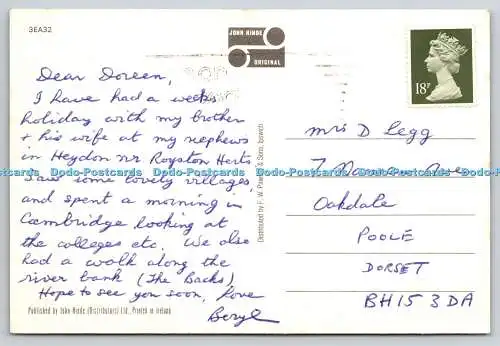 3EA32
JOHN HINDE
ORIGINAL
18P
Dear Doreen,
I have had a weeks
holiday with my brother
& his wife at my nephews
in Heydon nr Royston Herts.
Saw some lovely villages
and spent a morning in
Cambridge looking at
the colleges etc. We also
had a walk along the
river bank (The Backs)
Hope to see you soon, love
Beryl
Published by John Hinde (Distributors) Ltd., Printed in Ireland
Distributed by F. W. & Sons, Ipswich
Mrs D Legg
7
Oakdale
POOLE
DORSET
BH15 3DA
Dodo-Postcards Dodo-Postcards Dodo-Postcards Dodo-Postcards